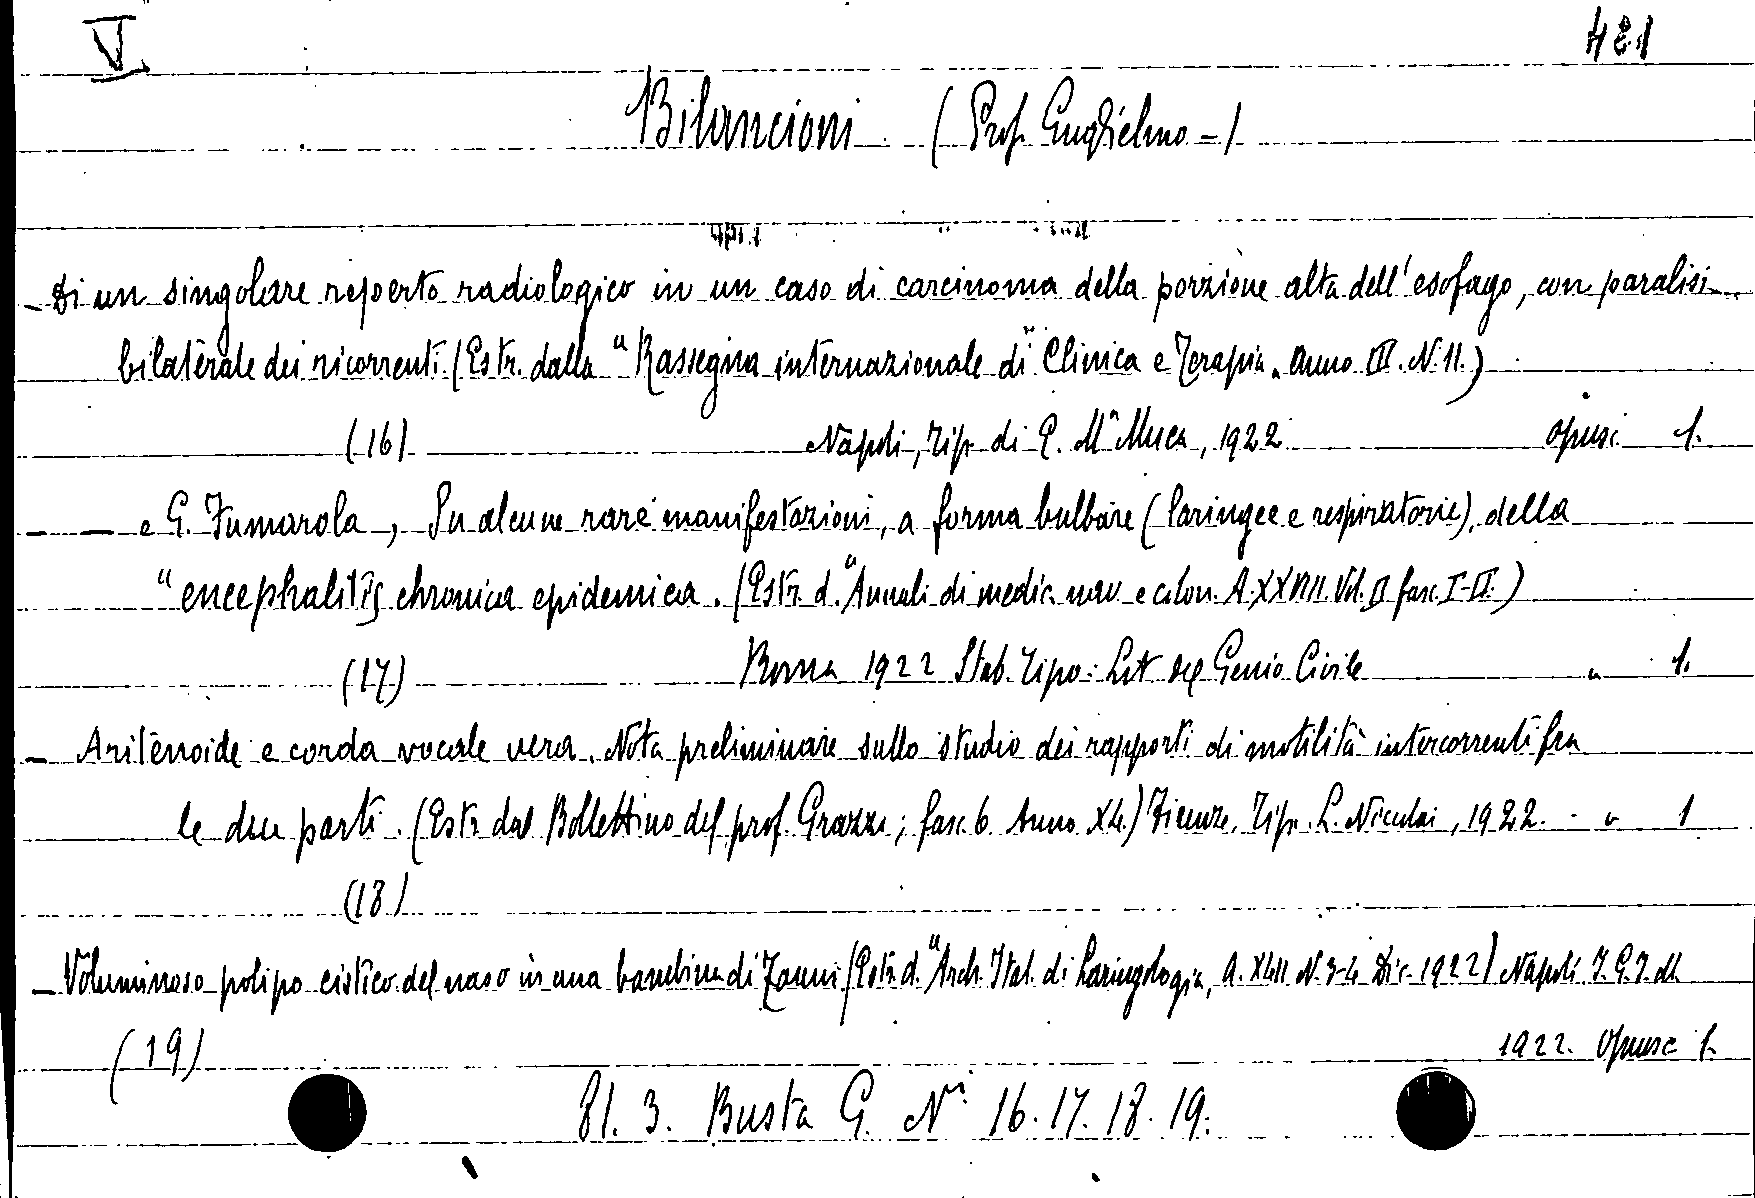 V. 481
Bilancioni (Prof. Guglielmo -)
- Di un singolare reperto radiologico in un caso di carcinoma della porzione alta dell'esofago, con paralisi
bilaterale dei ricorrenti. (Estr. dalla "Rassegna internazionale di Clinica e Terapia" Anno III. N. 11.)
(16) Napoli, Tip. di 1922 opusc. 1.
- — e G. Fumarola, Su alcune rare manifestazioni, a forma bulbare (laringee e respiratorie), della
"encephalitis chronica epidemica. (Estr. d. "Annali di medic. nav. e colon. A. XXVIII. Vol. II fasc. I-II.)
(17) Roma 1922 Stab. Tipo: Lit del Genio Civile " 1.
- Aritenoide e corda vocale vera. Nota preliminare sullo studio dei rapporti di motilità intercorrenti fra
le due parti. (Estr. dal Bollettino del prof. Grazzi; fasc. 6. Anno XL.) Firenze, Tip. L. Niccolai, 1922. " 1
(18)
- Voluminoso polipo cistico del naso in una bambina di 7 anni (Estr. d. "Arch. Ital. di Laringologia, A. XLII N. 3-4 Dic. 1922) Napoli.
(19) 1922. opusc 1.
81. 3. Busta G. Ni 16. 17. 18. 19.